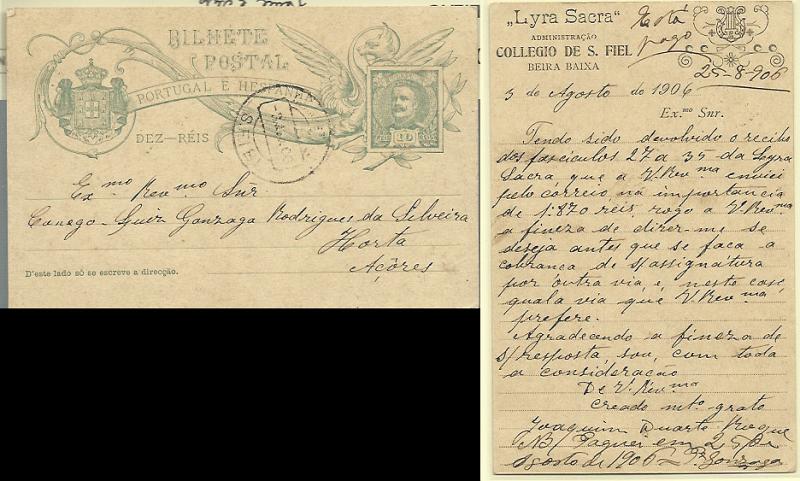 BILHETE
POSTAL
PORTUGAL E HES
DEZ—RÉIS
Ex.mo Rev.mo Snr
Conego Luiz Gonzaga Rodrigues da Silveira
Horta
Açôres
D'este lado só se escreve a direcção.
„Lyra Sacra“
Está
pago
ADMINISTRAÇÃO
COLLEGIO DE S. FIEL
BEIRA BAIXA
25-8-906
3 de Agosto de 1906
Ex.mo Snr.
Tendo sido devolvido o recibo
dos fasciculos 27 a 35 da Lyra
Sacra que a V. Rev.ma enviei
pelo correio na importancia
de 1:870 réis, rogo a V. Rev.ma
a fineza de dizer-me se
deseja antes que se faça a
cobrança de s/ assignatura
por outra via, e, neste caso,
qual a via que V. Rev.ma
prefere.
Agradecendo a fineza de
s/ resposta, sou, com toda
a consideração
De V. Rev.ma
creado mto. grato
Joaquim Duarte Roque
NB/ Paguei em 25 de
Agosto de 1906 P. Gonzaga